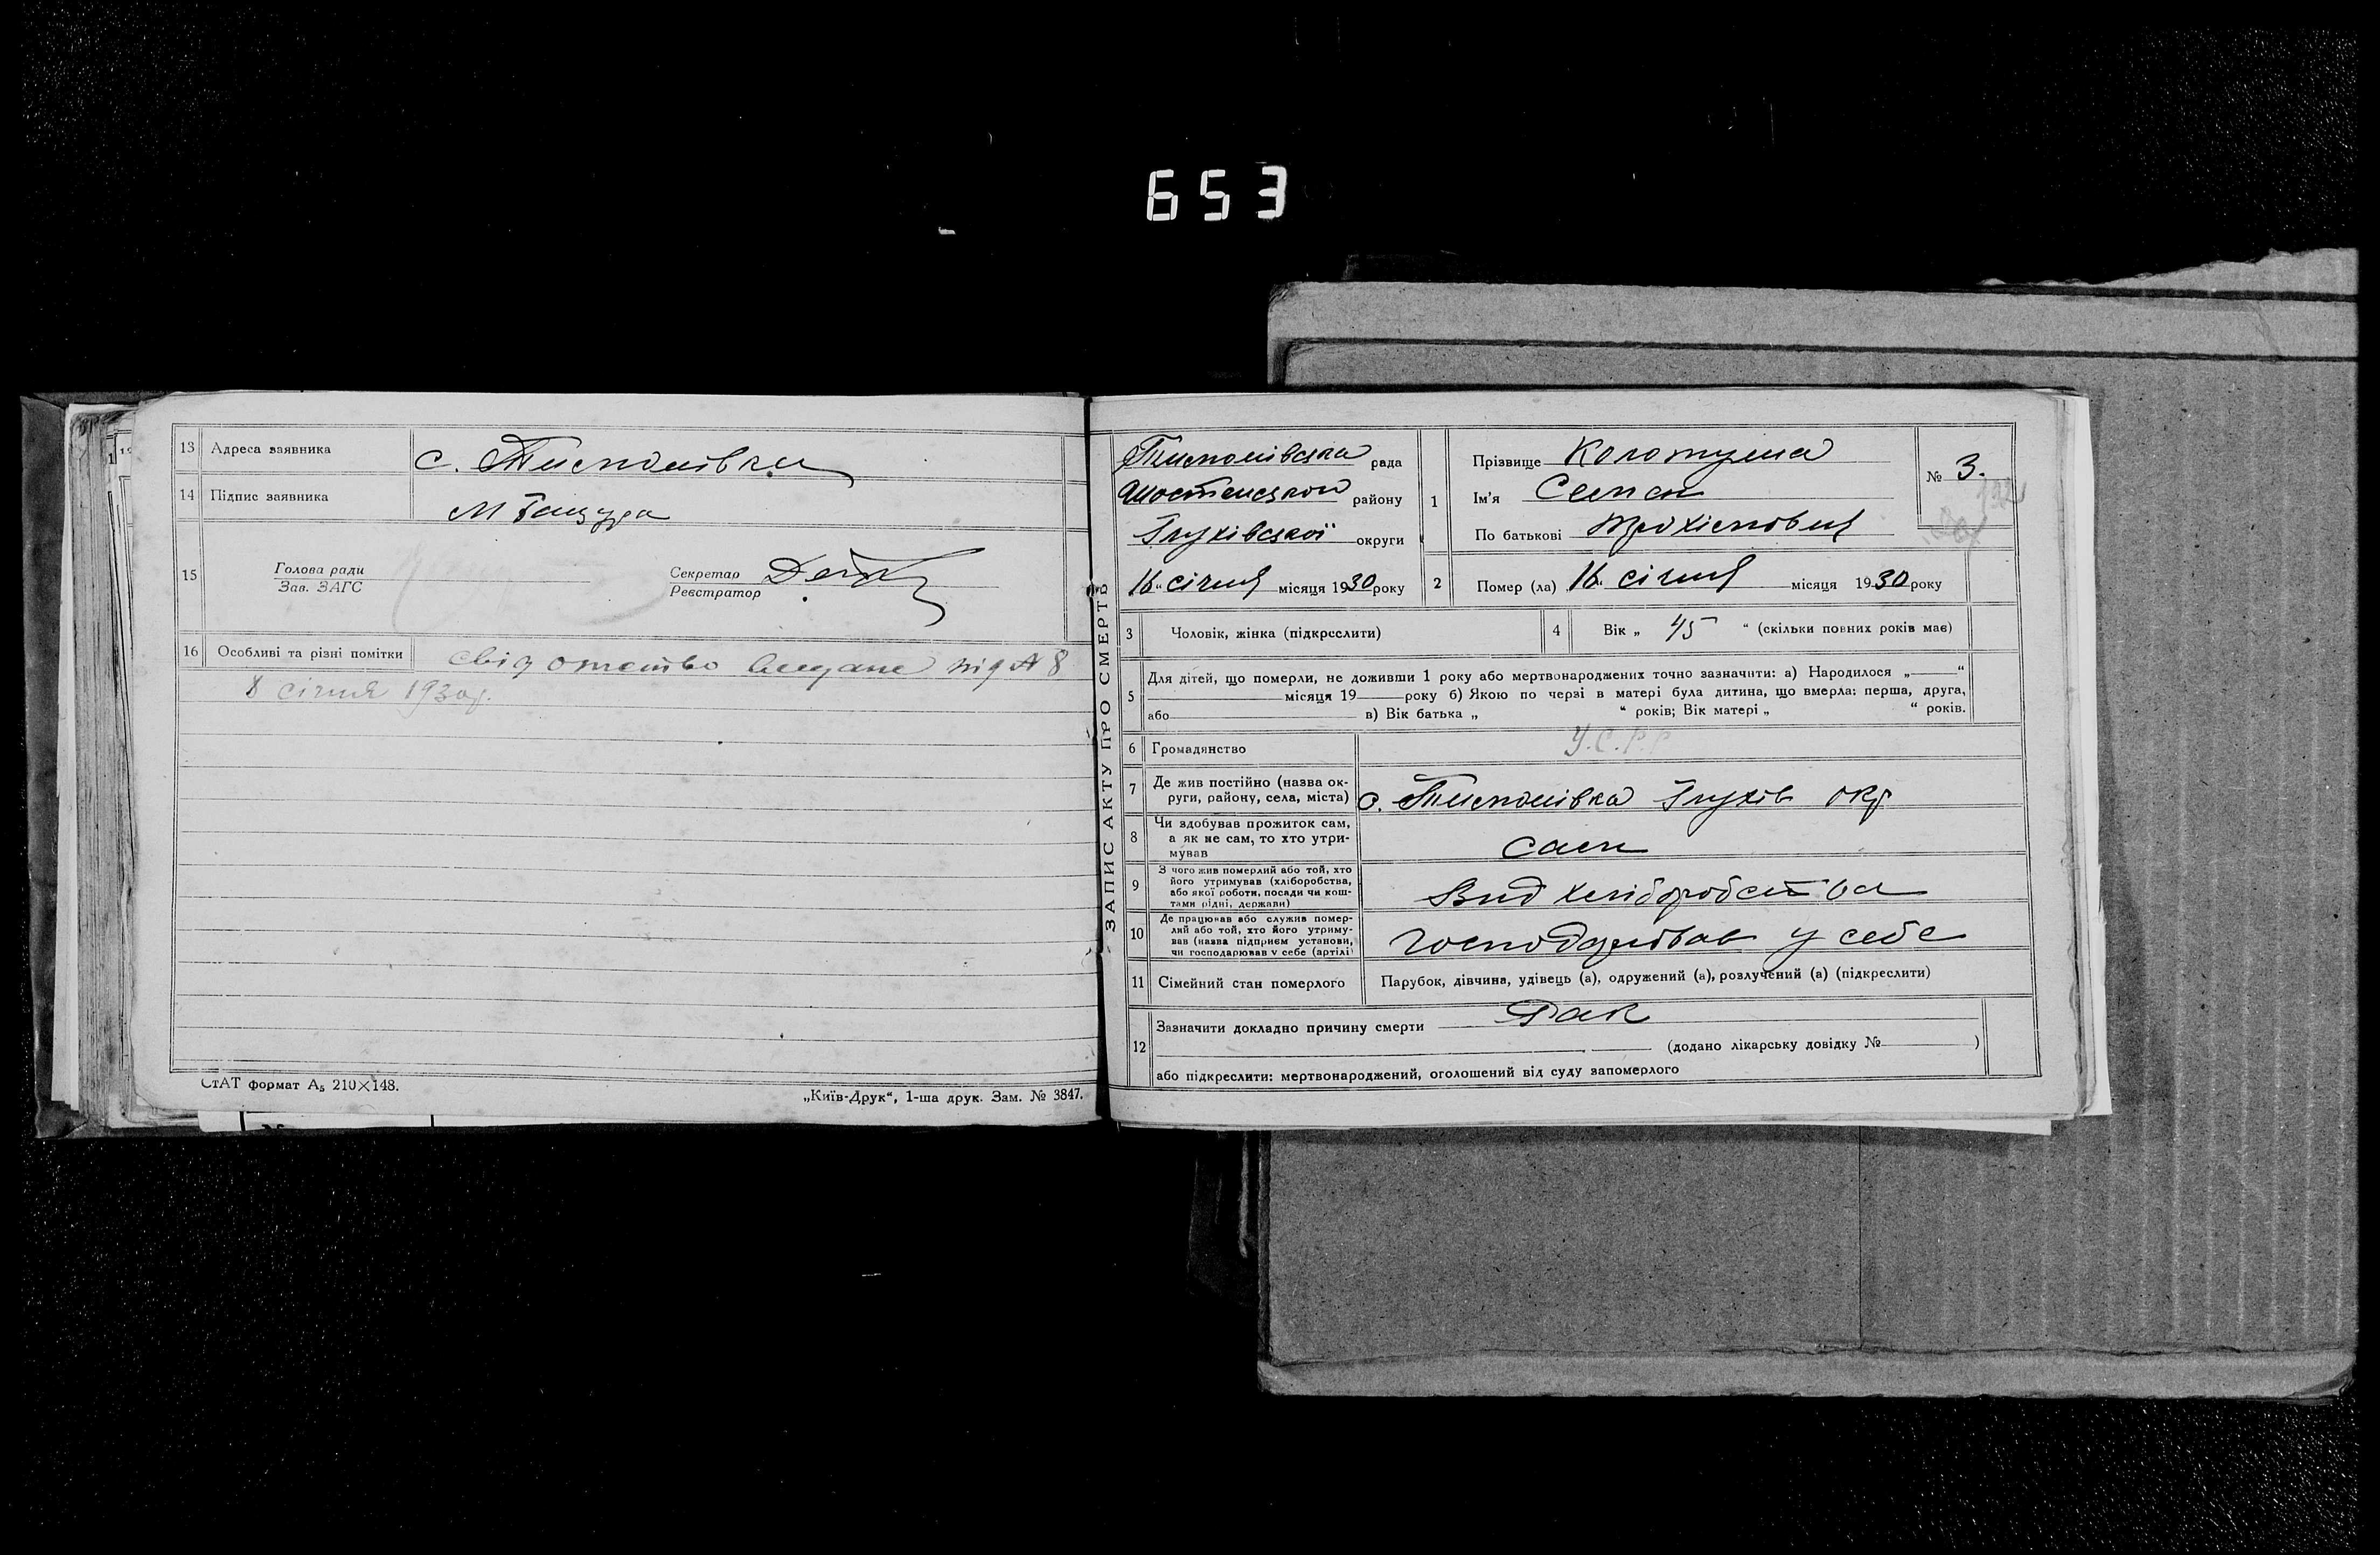 653
13 Адреса заявника с. Тимонівка
14 Підпис заявника М Бацура
15 Голова ради
Зав. ЗАГС
Секретар
Реєстратор
16 Особливі та різні помітки свідоцтво видане під № 8
8 січня 1930 р.
СтАТ формат А₅ 210×148.
„Київ-Друк“, 1-ша друк. Зам. № 3847.
ЗАПИС АКТУ ПРО СМЕРТЬ
Тимонівська рада
Шостенського району
Глухівської округи
„16“ січня місяця 1930 року
1 Прізвище Колотуша
Ім'я Семен
По батькові Трохимович
№ 3.
2 Помер (ла) „16“ січня місяця 1930 року
3 Чоловік, жінка (підкреслити)
4 Вік „ 45 “ (скільки повних років має)
5 Для дітей, що померли, не доживши 1 року або мертвонароджених точно зазначити: а) Народилося „ “
місяця 19 року б) Якою по черзі в матері була дитина, що вмерла: перша, друга,
або в) Вік батька „ “ років; Вік матері „ “ років.
6 Громадянство У.С.Р.Р
7 Де жив постійно (назва ок-
руги, району, села, міста) с. Тимонівка Глухів окр
8 Чи здобував прожиток сам,
а як не сам, то хто утри-
мував сам
9 З чого жив померлий або той, хто
його утримував (хліборобства,
або якої роботи, посади чи кош-
тами рідні, держави) Вид хліборобства
10 Де працював або служив помер-
лий або той, хто його утриму-
вав (назва підприєм установи,
чи господарював у себе (артілі) господарював у себе
11 Сімейний стан померлого Парубок, дівчина, удівець (а), одружений (а), розлучений (а) (підкреслити)
12 Зазначити докладно причину смерти Рак
(додано лікарську довідку № )
або підкреслити: мертвонароджений, оголошений від суду запомерлого